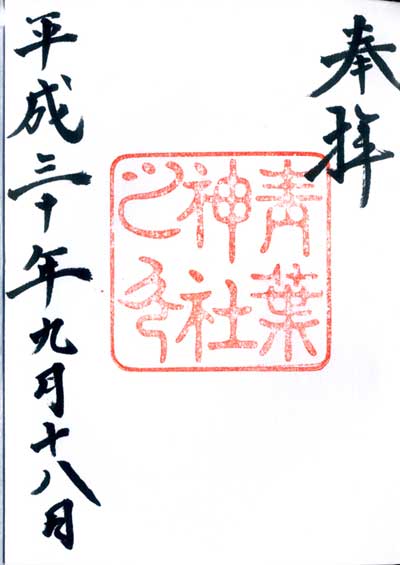 奉拝
青葉
神社
之印
平成三十年九月十八日